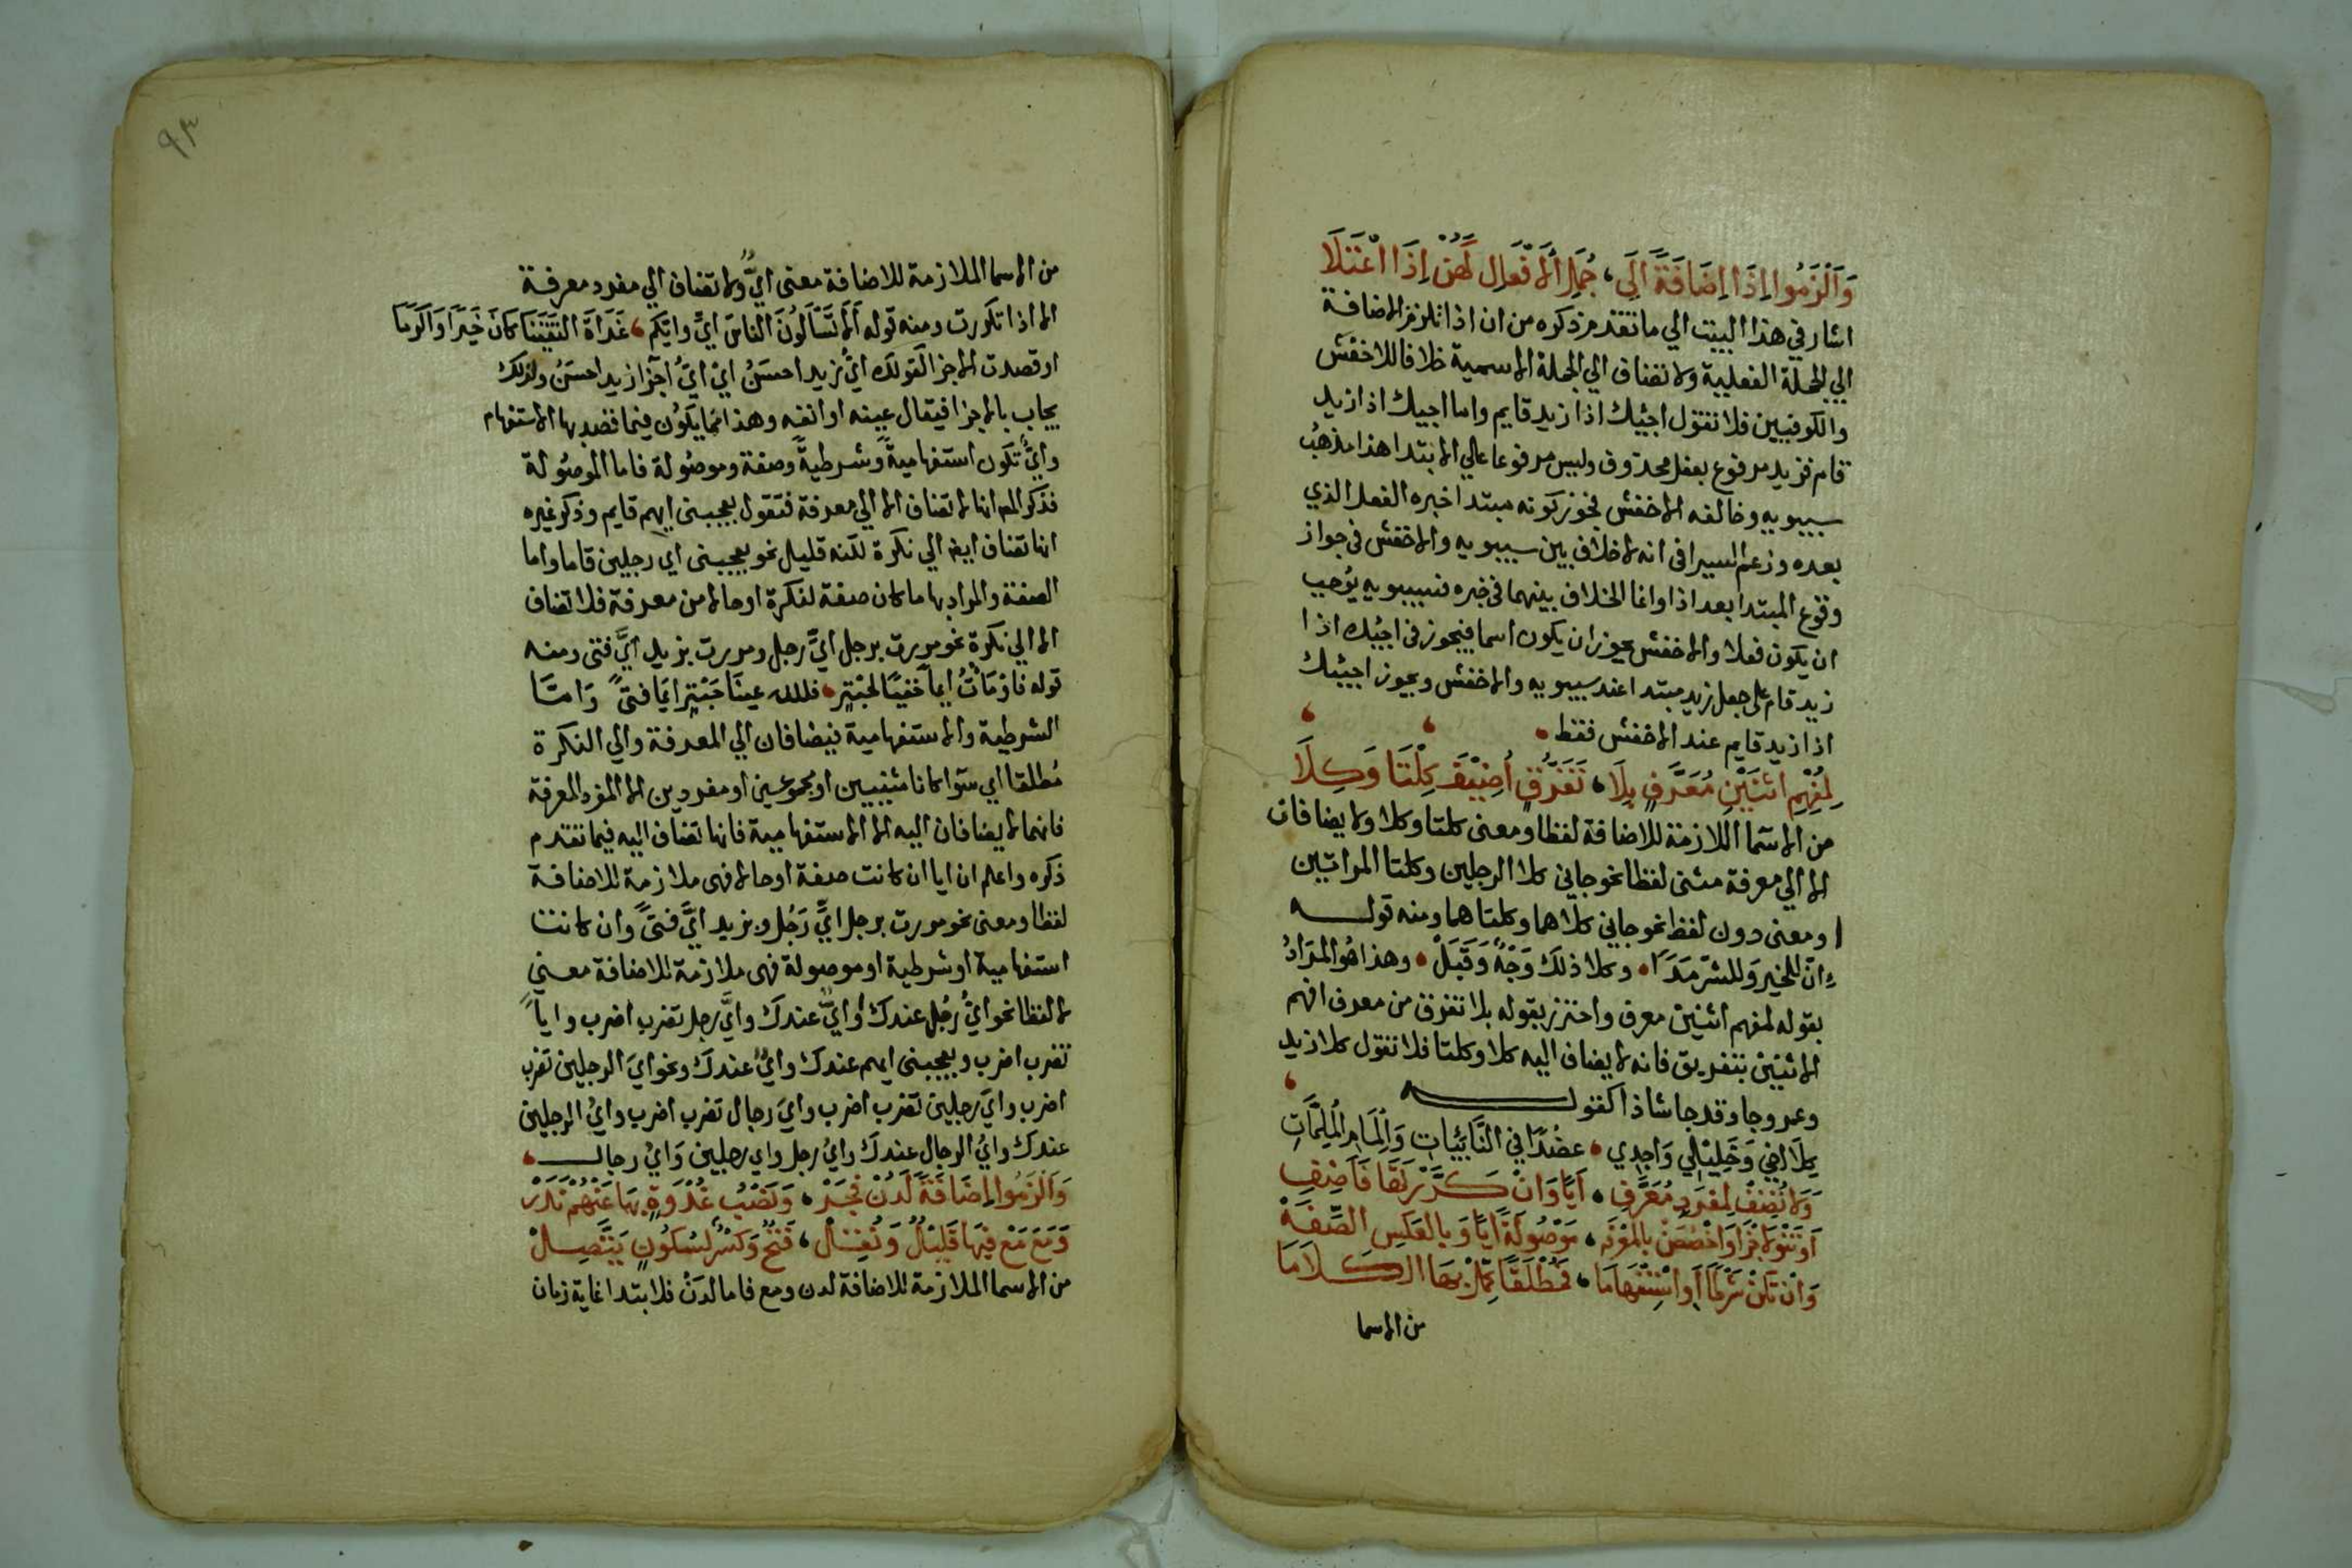 وَأَلْزَمُوا إِذَا إِضَافَةً إِلَى، جُمَلِ الافْعَالِ كَهُنْ إِذَا اعْتَلَا
اشار في هذا البيت الي ما تقدم ذكره من ان اذا تلزم الاضافة
الي الجملة الفعلية ولا تضاف الي الجملة الاسمية خلافا للاخفش
والكوفيين فلا تقول اجئيك اذا زيد قايم واما اجيك اذا زيد
قام فزيد مرفوع بفعل محذوف وليس مرفوعا علي الابتدا هذا مذهب
سيبويه وخالفه الاخفش فجوز كونه مبتدا خبره الفعل الذي
بعده وزعم السيرافي انه لا خلاف بين سيبويه والاخفش في جواز
وقوع المبتدا بعد اذا وانما الخلاف بينهما في خبره فسيبويه يُوجب
ان يكون فعلا والاخفش يجوز ان يكون اسما فيجوز في اجئيك اذا
زيد قام على جعل زيد مبتدا عند سيبويه والاخفش ويجوز اجيئك
اذا زيد قايم عند الاخفش فقط
لِمُفْهِمِ اثْنَيْنِ مُعَرَّفٍ بِلَا، تَفَرُّقٍ أُضِيْفَ كِلْتَا وَكِلَا
من الاسما اللازمة للاضافة لفظا ومعنى كلتا وكلا ولا يضافان
الا الي معرفة مثنى لفظا نحو جاني كلا الرجلين وكلتا المراتين
او معنى دون لفظ نحو جاني كلاهما وكلتاهما ومنه قوله
إنّ للخير وَللشّر مَدَىً وكلا ذلك وَجْهٌ وَقَبَلْ وهذا هُو المرَادُ
بقوله لمفهم اثنين معرف واحترز بقوله بلا تفرق من معرف افهم
الاثنين بتفريق فانه لا يضاف اليه كلا وكلتا فلا تقول كلا زيد
وعمرو جا وقد جا شاذا كقوله
كِلَا اخِي وَخَلِيْلِي وَاجِدِي عضُدًا في النَّائِبَاتِ وَاِلْمَامِ الْمُلِمَّاتِ
وَلا تُضِفْ لِمُفْرَدٍ مُعَرَّفِ، أَيًّا وَانْ كَرَّرْتَهَا فَأَضِفِ
أوْ تَنْوِ الاجْزَا وَاخْصُصَنْ بِالْمَعْرِفَه، مَوْصُولَةً أَيًّا وَبِالْعَكْسِ الصِّفَهْ
وَانْ تَكُنْ شَرْطًا أَوِ اسْتِفْهَامَا، فَمُطْلَقًا كَمِّلْ بِهَا الْكَلَامَا
من الاسما
٩٣
من الاسما الملازمة للاضافة معنى ايٌّ ولا تضاف الي مفرد معرفة
الا اذا تكررت ومنه قوله أَلَا تَسْأَلُونَ الناسَ أيِّ وايّكم غَدَاةَ التَقَيْنَا كَانَ خَيْرًا وَاَكْرَمَا
او قصدت الاجزا كقولك ايُّ زيد احسَنُ ايْ ايُّ اجزا زيد احسَنُ ولذلك
يجاب بالاجزا فيقال عينه او انفه وهذا انما يكُون فيما قصد بها الاستفهام
وايٌّ تكون استفهاميةً وشرطيةً وصفة وموصُولة فاما الموصُولة
فذكر المص انها لا تضاف الا الي معرفة فتقول يعجبنى ايهم قايم وذكر غيره
انها تضاف ايض الي نكرة لكنه قليل نحو يعجبنى اي رجلين قاما واما
الصفة والمراد بها ما كان صفة لنكرة او حالا من معرفة فلا تضاف
الا الي نكرة نحو مررت برجل ايِّ رجل ومررت بزيد ايَّ فتى ومنه
قوله فاوْمَأتُ ايمآً خفيّا لحَبْتَرٍ فلله عينَا حَبْتَرٍ ايّمَا فتىً وَامّا
الشرطية والاستفهامية فيضافان الي المعرفة والي النكرة
مُطلقا اي سَوا كانا مثنيين او مجموعين او مفردين الا المفرد المعرفة
فانهما لا يضافان اليه الا الاستفهامية فانها تضاف اليه فيما تقدم
ذكره واعلم ان ايا ان كانت صفة او حالا فهى ملازمة للاضافة
لفظا ومعنى نحو مررت برجل ايِّ رَجُل وبزيد ايَّ فتىً وان كانت
استفهامية أو شرطية او موصولة فهى ملازمة للاضافة معنى
لا لفظا نحو ايُّ رُجل عندك أو ايٌّ عندك وايَّ رجل تضرب اضرب وايّاً
تضرب اضرب ويعجبنى ايهم عندك وايٌّ عندك ونحو ايَ الرجلين تضرب
اضرب وايَ رجلين تضرب اضرب وايَ رجال تضرب اضرب وايُ الرجلين
عندك وايُ الرجال عندك وايُ رجل واي رجلين وَايُ رجال
وَأَلْزَمُوا إِضَافَةً لَدُنْ فَجَرّْ، وَنَصْبُ غُدْوَةٍ بِهَا عَنْهُمْ نَدَرْ
وَمَعَ مَعْ فِيهَا قَلِيلٌ وَنُقِلْ، فَتْحٌ وَكَسْرٌ لِسُكُونٍ يَتَّصِلْ
من الاسما الملازمة للاضافة لدن ومع فاما لدَنْ فلابتدا غاية زمان